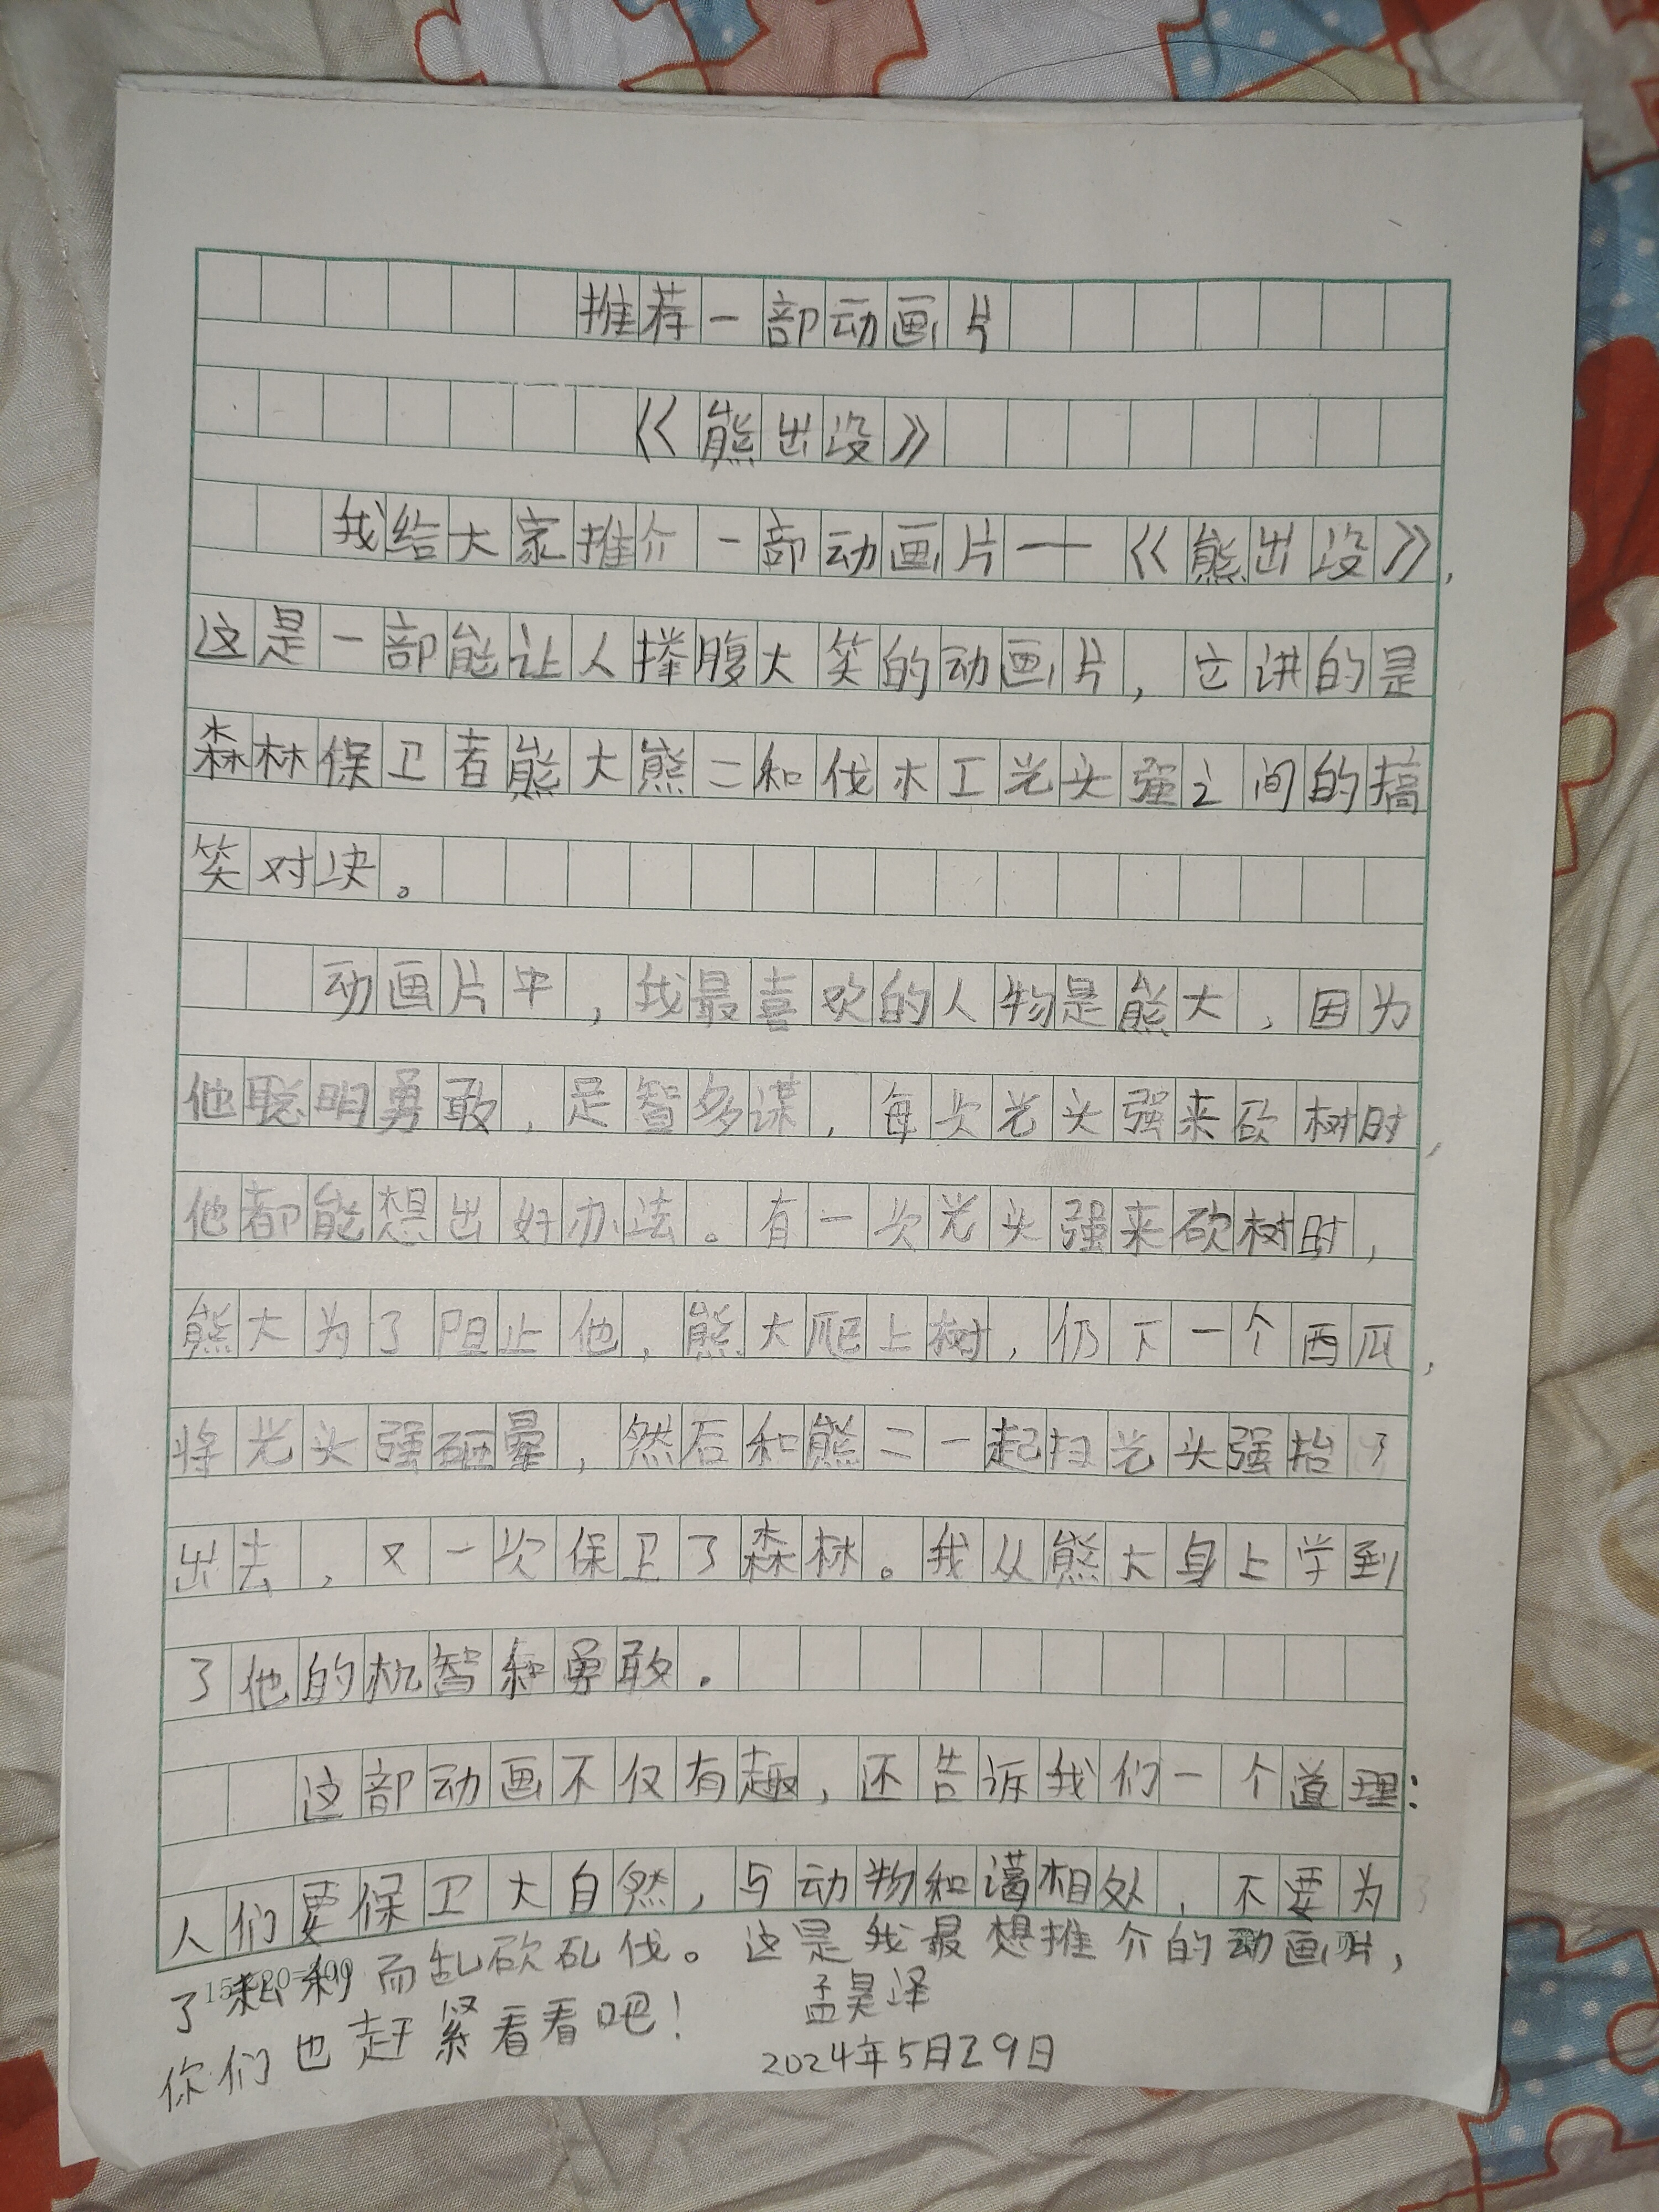 推荐一部动画片
《熊出没》
我给大家推介一部动画片——《熊出没》,
这是一部能让人捧腹大笑的动画片,它讲的是
森林保卫者熊大熊二和伐木工光头强之间的搞
笑对块。
动画片中,我最喜欢的人物是熊大,因为
他聪明勇敢,足智多谋,每次光头强来砍树时,
他都能想出好办法。有一次光头强来砍树时,
熊大为了阻止他,熊大爬上树,仍下一个西瓜,
将光头强砸晕,然后和熊二一起把光头强抬了
出去,又一次保卫了森林。我从熊大身上学到
了他的机智和勇敢.
这部动画不仅有趣,还告诉我们一个道理:
人们要保卫大自然,与动物和谐相处,不要为
了私利而乱砍乱伐。这是我最想推介的动画片,
你们也赶紧看看吧!
孟昊泽
2024年5月29日